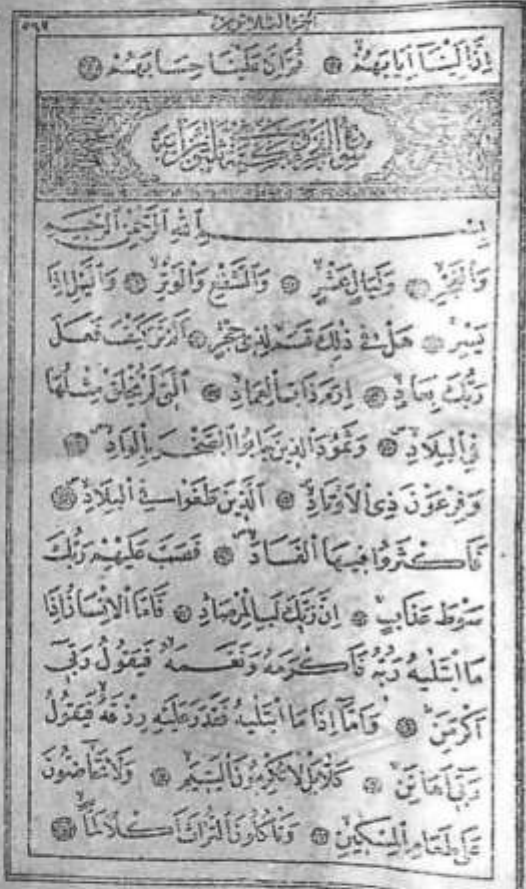 الجزء الثلاثون
٥٩٧
اِنَّ اِلَيْنَٓا اِيَابَهُمْۙ ثُمَّ اِنَّ عَلَيْنَا حِسَابَهُمْ
سورة الفجر مكية
بِسْمِ اللّٰهِ الرَّحْمٰنِ الرَّحِيمِ
وَالْفَجْرِۙ وَلَيَالٍ عَشْرٍۙ وَالشَّفْعِ وَالْوَتْرِۙ وَالَّيْلِ اِذَا
يَسْرِۚ هَلْ فِي ذٰلِكَ قَسَمٌ لِذِي حِجْرٍۜ اَلَمْ تَرَ كَيْفَ فَعَلَ
رَبُّكَ بِعَادٍۙ اِرَمَ ذَاتِ الْعِمَادِۙ اَلَّتِي لَمْ يُخْلَقْ مِثْلُهَا
فِي الْبِلَادِۙ وَثَمُودَ الَّذِينَ جَابُوا الصَّخْرَ بِالْوَادِۙ
وَفِرْعَوْنَ ذِي الْاَوْتَادِۙ اَلَّذِينَ طَغَوْا فِي الْبِلَادِۙ
فَاَكْثَرُوا فِيهَا الْفَسَادَۙ فَصَبَّ عَلَيْهِمْ رَبُّكَ
سَوْطَ عَذَابٍۚ اِنَّ رَبَّكَ لَبِالْمِرْصَادِۜ فَاَمَّا الْاِنْسَانُ اِذَا
مَا ابْتَلٰيهُ رَبُّهُ فَاَكْرَمَهُ وَنَعَّمَهُۙ فَيَقُولُ رَبِّٓي
اَكْرَمَنِۜ وَاَمَّٓا اِذَا مَا ابْتَلٰيهُ فَقَدَرَ عَلَيْهِ رِزْقَهُۙ فَيَقُولُ
رَبِّٓي اَهَانَنِۚ كَلَّا بَلْ لَا تُكْرِمُونَ الْيَتِيمَۙ وَلَا تَحَٓاضُّونَ
عَلٰى طَعَامِ الْمِسْكِينِۙ وَتَأْكُلُونَ التُّرَاثَ اَكْلًا لَمًّاۙ